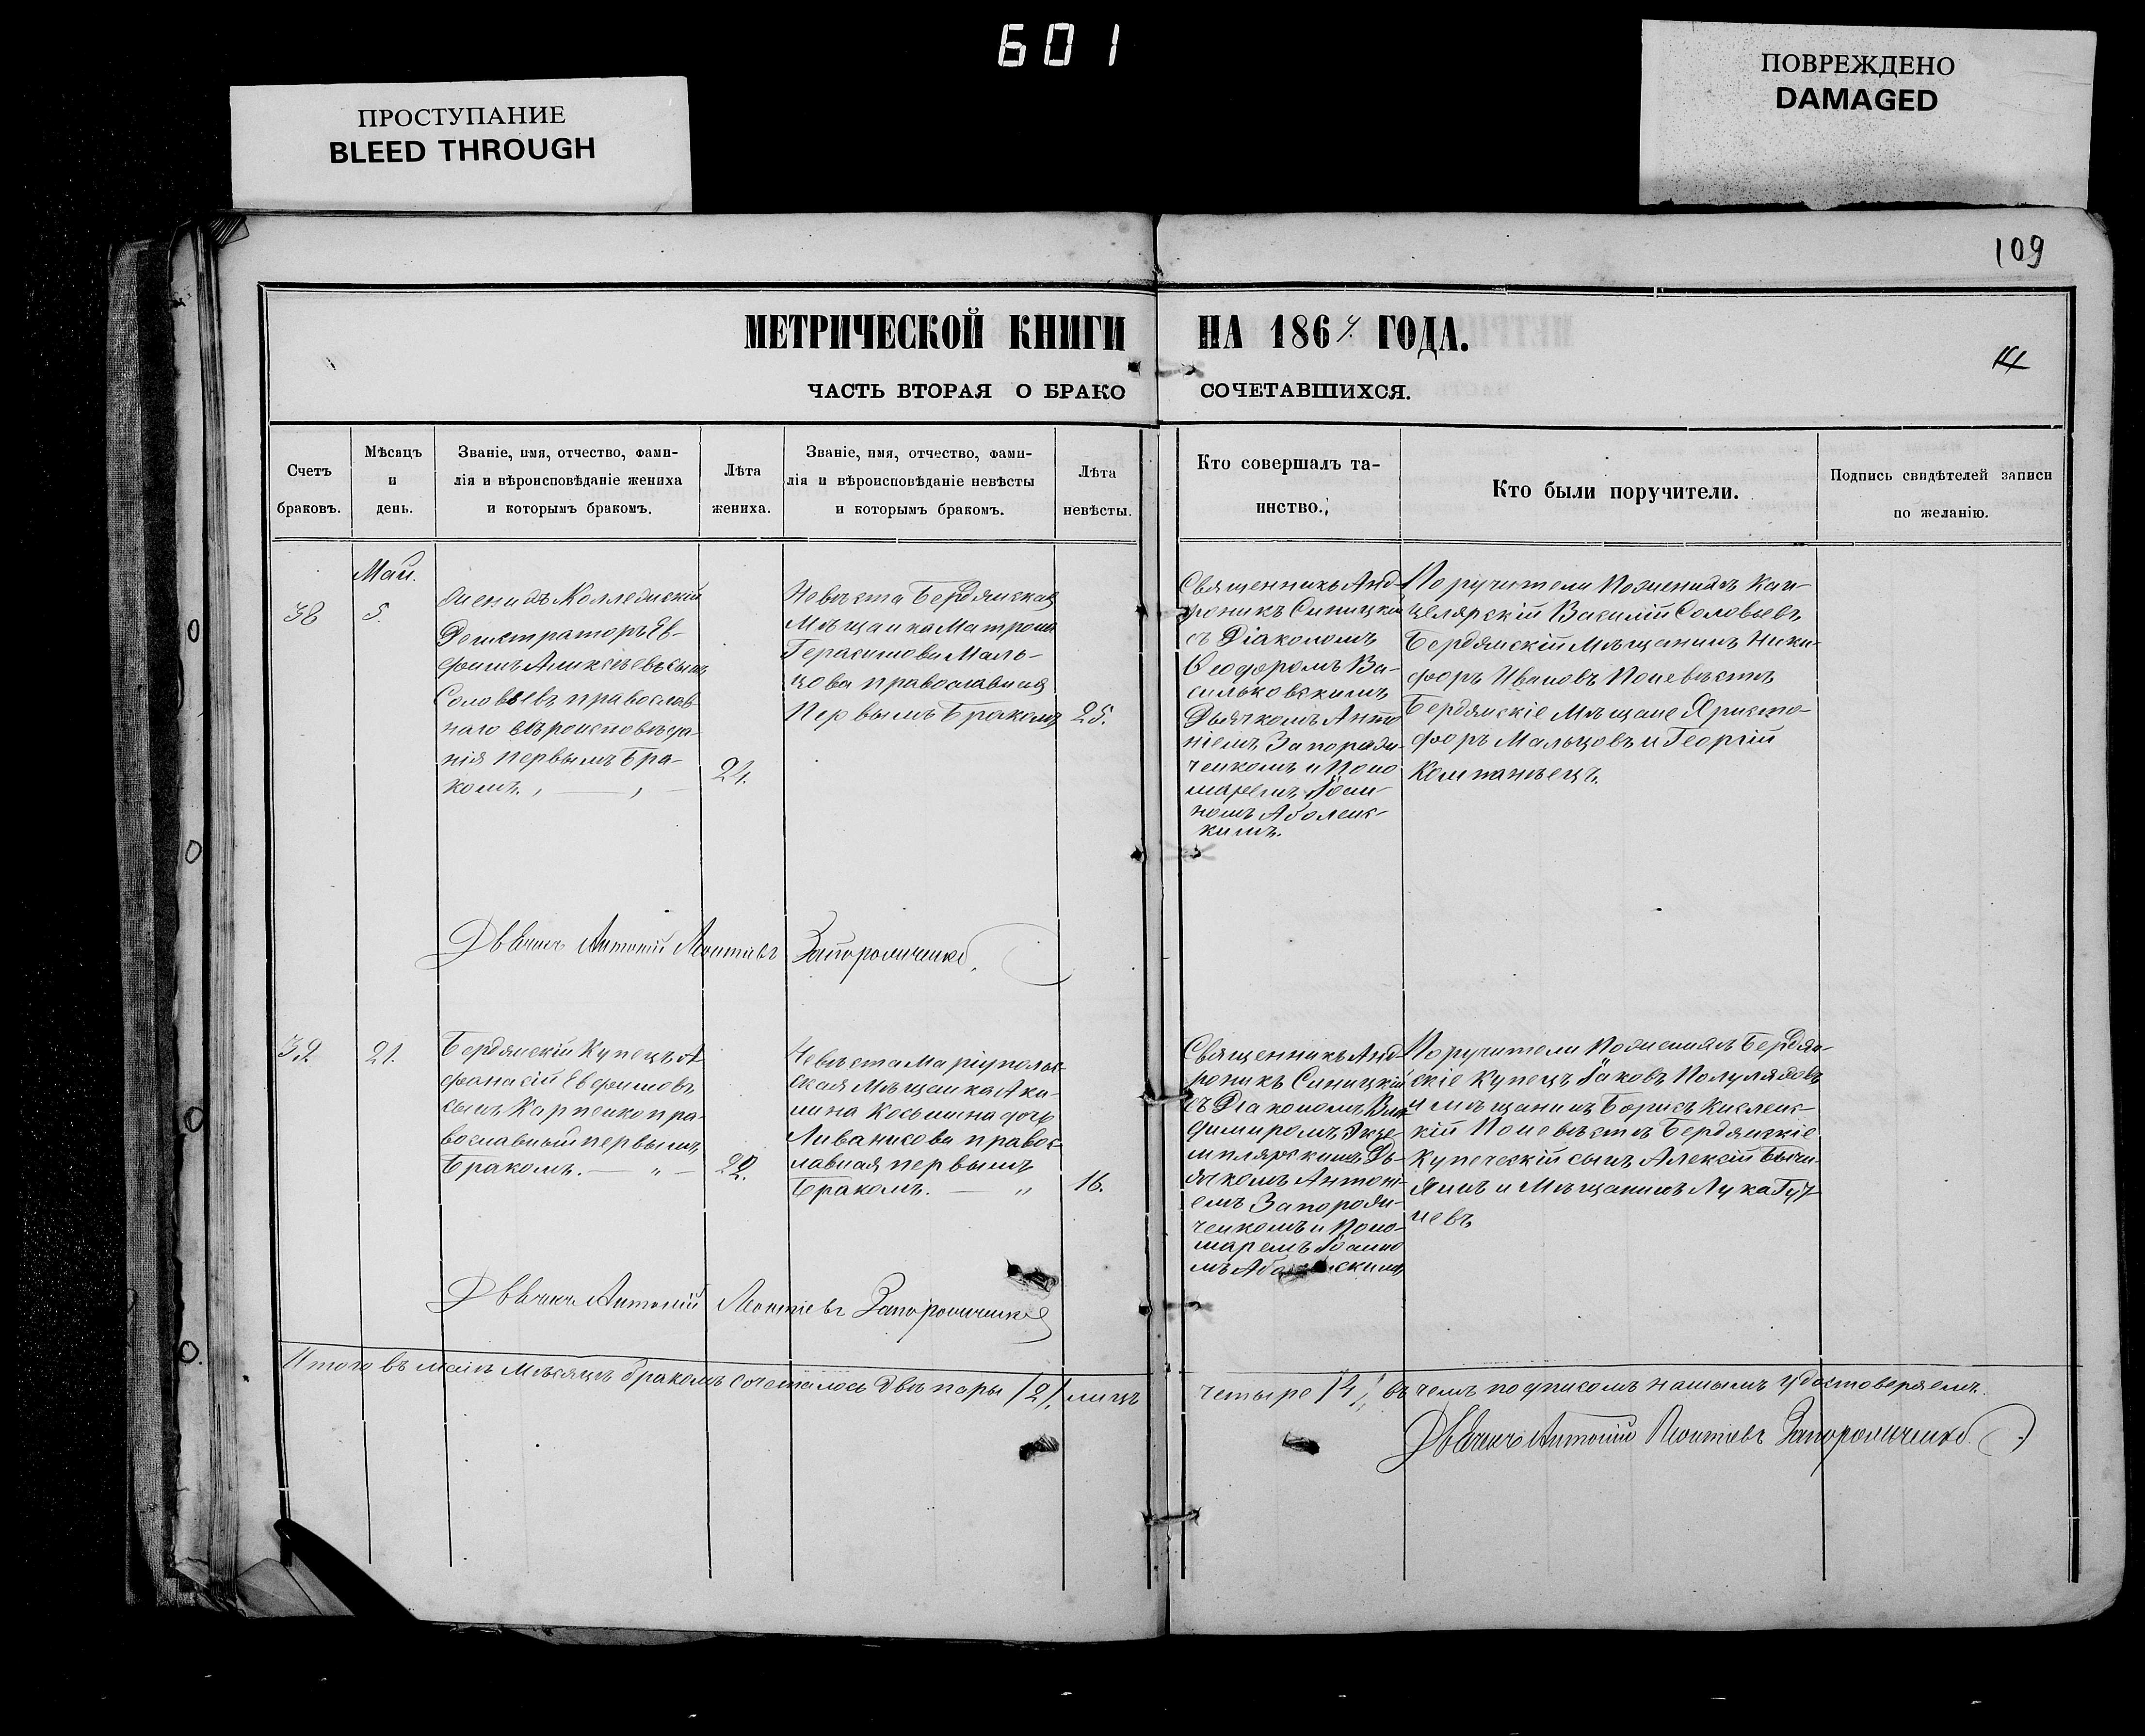 601
ПРОСТУПАНИЕ
BLEED THROUGH
ПОВРЕЖДЕНО
DAMAGED
109
МЕТРИЧЕСКОЙ КНИГИ НА 1864 ГОДА.
ЧАСТЬ ВТОРАЯ О БРАКО СОЧЕТАВШИХСЯ.
Счетъ
браковъ.
Мѣсяцъ
и
день.
Званіе, имя, отчество, фами-
лія и вѣроисповѣданіе жениха
и которымъ бракомъ.
Лѣта
жениха.
Званіе, имя, отчество, фами-
лія и вѣроисповѣданіе невѣсты
и которымъ бракомъ.
Лѣта
невѣсты.
Кто совершалъ та-
инство.
Кто были поручители.
Подпись свидѣтелей записи
по желанію.
38
Май.
5.
Женихъ Коллежскій
Регистраторъ Ев-
фимъ Алексѣевъ сынъ
Соловьевъ православ-
наго вѣроисповѣда-
нія первымъ бра-
комъ.
24.
Невѣста Бердянская
Мѣщанка Матрона
Герасимова Маль-
цова православная
Первымъ Бракомъ
25.
Священникъ Анд-
роникъ Синицкій
съ Діакономъ
Ѳеодоромъ Ва-
сильковскимъ
Дьячкомъ Анто
ніемъ Запорож-
ченкомъ и Поно
маремъ Іоан-
номъ Аболенс-
кимъ.
Поручители По женихѣ Кан-
целярскій Василій Соловьевъ
Бердянскій Мѣщанинъ Ники-
форъ Ивановъ По невѣстѣ
Бердянскіе Мѣщане Христо-
форъ Мальцовъ и Георгій
Компанѣецъ.
Дьячкъ Антоній Леонтіевъ Запорожченко
39
21.
Бердянскій Купецъ А
фанасій Евфимовъ
сынъ Карпенко пра-
вославный первымъ
Бракомъ.
22.
Невѣста Маріуполь-
ская Мѣщанка Аки-
лина Косьмина дочь
Ливанисова правос-
лавная первымъ
Бракомъ.
16.
Священникъ Анд-
роникъ Синицкій
съ Діакономъ Вла
димиромъ Экзе-
мплярскимъ Дь-
ячкомъ Антоні-
емъ Запорож-
ченкомъ и Поно-
маремъ Іоанно
мъ скимъ
Поручители По женихѣ Бердян-
скіе Купецъ Іаковъ
и мѣщанинъ Борисъ Кисленс-
кій По невѣстѣ Бердянскіе
Купеческій сынъ Алексій
и Мѣщанинъ Лука
невъ
Дьячкъ Антоній Леонтіевъ Запорожченко
Итого въ маѣ мѣсяцѣ бракомъ сочеталось двѣ пары /2/ лицъ четыре /4/, въ чемъ подписомъ нашымъ удостоверяемъ.
Дьячкъ Антоній Леонтіевъ Запорожченко